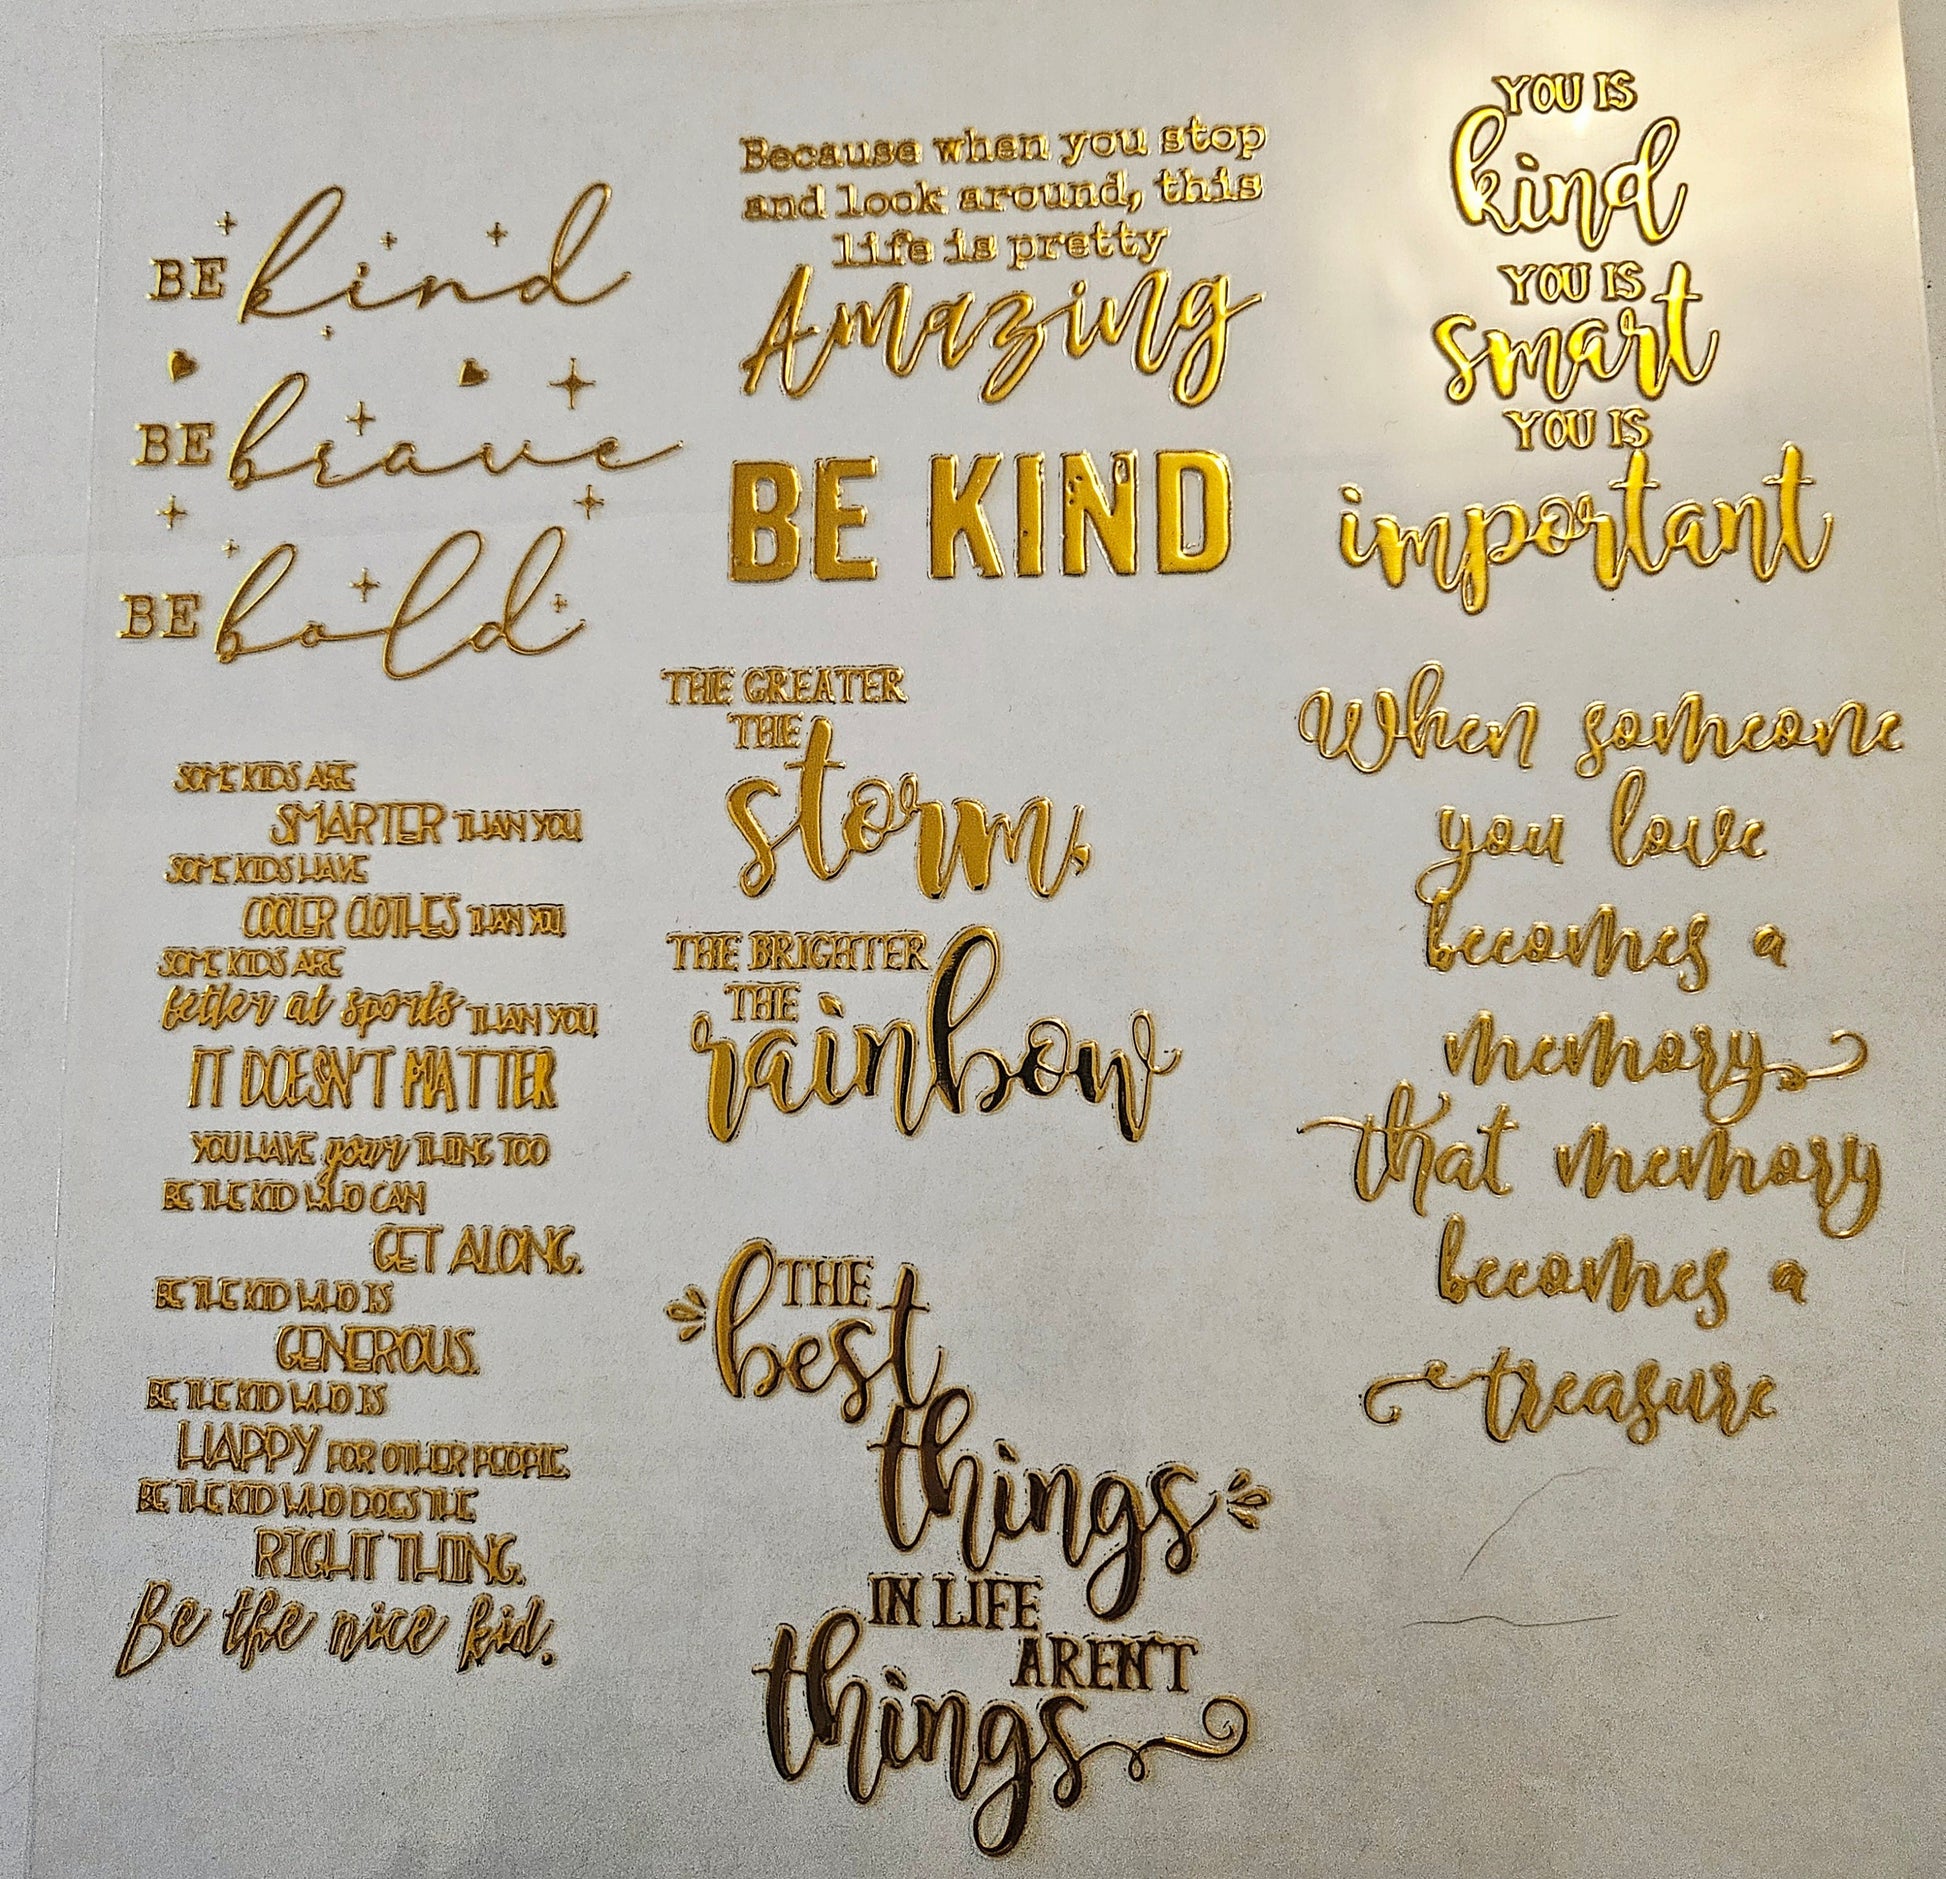 BE kind
BE brave
BE bold
SOME KIDS ARE
SMARTER THAN YOU,
SOME KIDS HAVE
COOLER CLOTHES THAN YOU,
SOME KIDS ARE
better at sports THAN YOU,
IT DOESN'T MATTER
YOU HAVE your THING TOO
BE THE KID WHO CAN
GET ALONG.
BE THE KID WHO IS
GENEROUS.
BE THE KID WHO IS
HAPPY FOR OTHER PEOPLE.
BE THE KID WHO DOES THE
RIGHT THING.
Be the nice kid.
Because when you stop
and look around, this
life is pretty
Amazing
BE KIND
THE GREATER
THE
storm,
THE BRIGHTER
THE
rainbow
THE
best
things
IN LIFE
AREN'T
things
YOU IS
kind
YOU IS
smart
YOU IS
important
When someone
you love
becomes a
memory,
that memory
becomes a
treasure